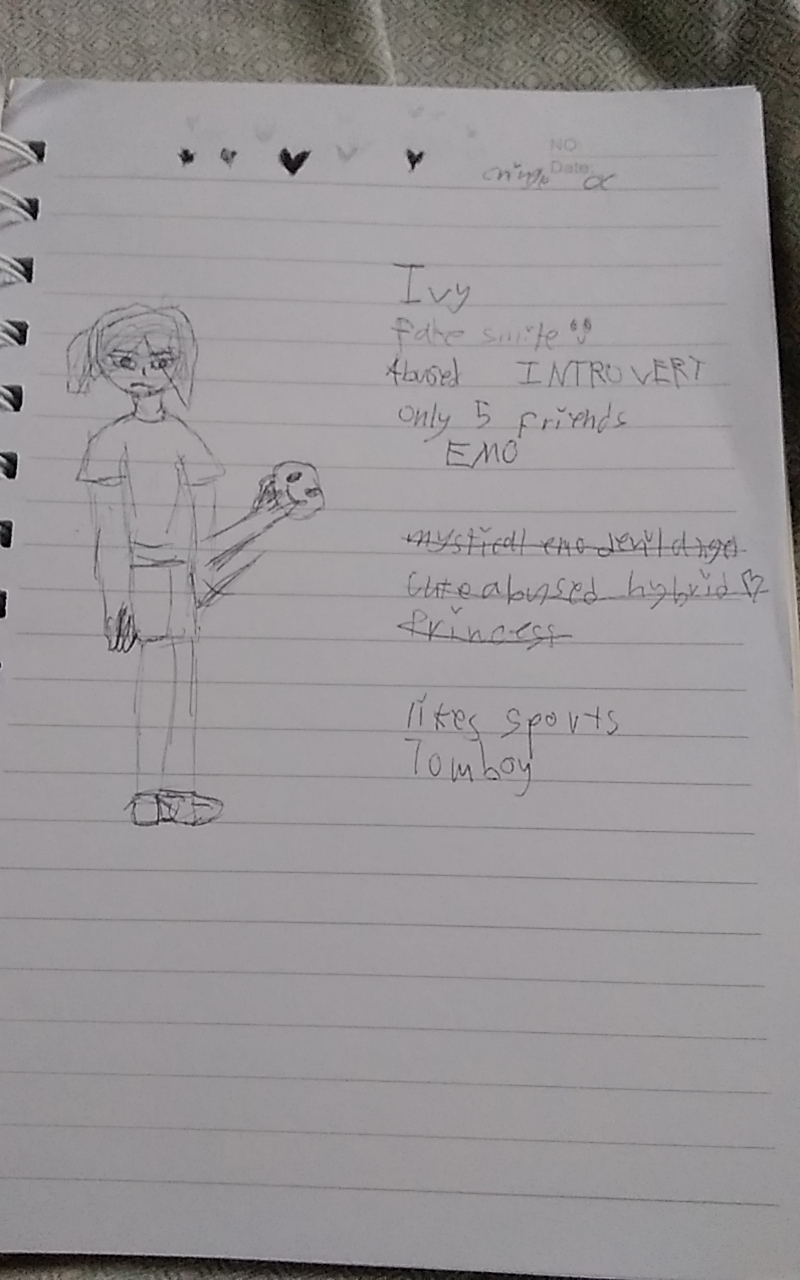 NO
Date
cringe
Ivy
fake smile
Abused INTROVERT
only 5 friends
EMO
mystical emo devil angel
Cute abused hybrid ♡
Princess
likes sports
Tomboy